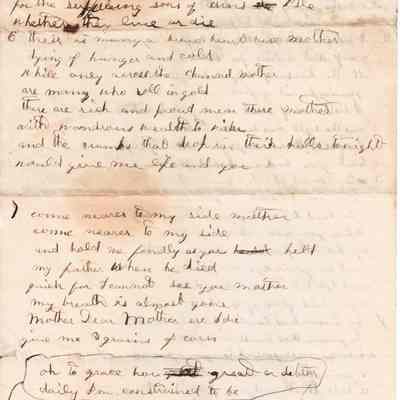 for the suffering sons of
whether they live or die
6 their is many a brave here mother
dying of hunger and cold
While only across the channel mother
are many who roll in gold
there are rich and proud men there mother
with wondrous wealth to view
and the crumbs that drop in their halls tonight
would give me life and you
) come nearer to my side mother
come nearer to my side
and hold me fondly as you held
my father when he died
quick for I cannot see you mother
my breath is almost gone
Mother Dear Mother ere I die
give me 3 grains of corn
oh to grace how great a debtor
daily I am constrained to be